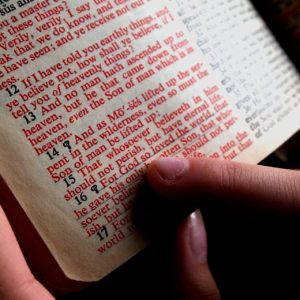 a master
things?
Verily, verily, I say unto
eak that we do know, and testify
have seen; and ye receive not our
12 If I have told you earthly things, and
ye believe not, how shall ye believe, if I
tell you of heavenly things?
13 And no man hath ascended up to
heaven, but he that came down from
heaven, even the Son of man which is in
heaven.
14 ¶ And as Mō´ses lifted up the ser-
pent in the wilderness, even so must the
Son of man be lifted up:
15 That whosoever believeth in him
should not perish, but have eternal life.
16 ¶ For God so loved the world, that
he gave his only Son, that who-
soever believe
ish, but
17 For G into the
world to